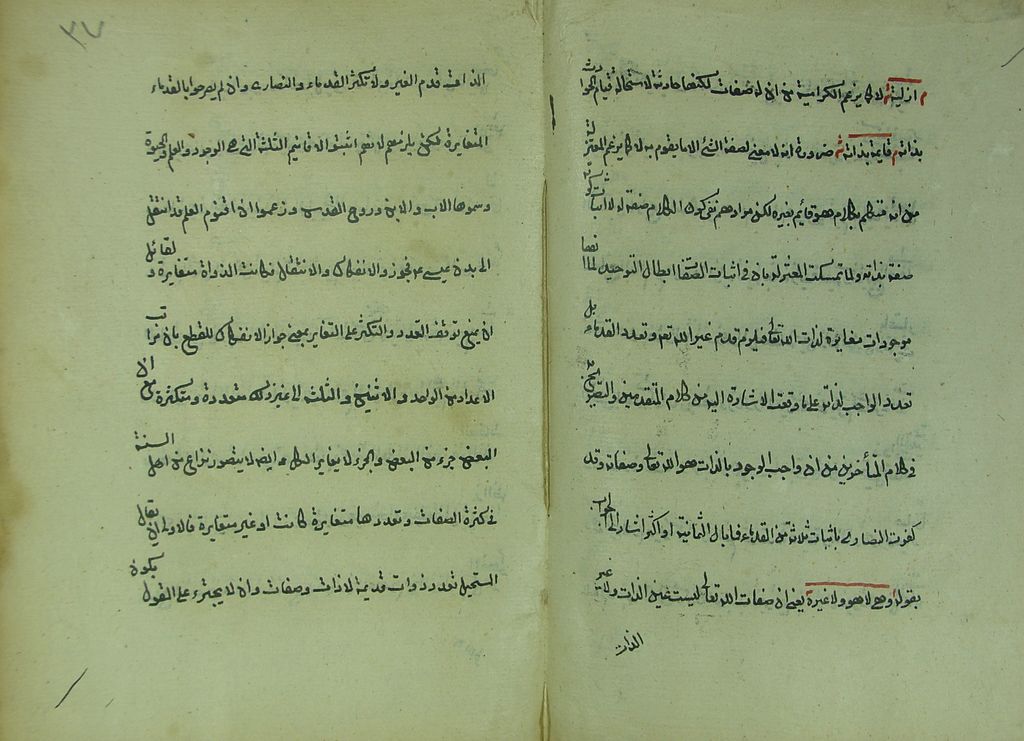 ازلية لا كما يزعم الكرامية من ان له صفات لكنها حادثة لاستحالة قيام الحوادث
بذاته قايمة بذاته ضرورة انه لا معنى لصفة الشئ الا ما يقوم به لا كما يزعم المعتزلة
من انه متكلم بكلام هو قائم بغيره لكن مرادهم نفى كون الكلام صفة له لا اثبات كونه
صفة بذاته ولما تمسكت المعتزلة بان فى اثبات الصفات ابطال التوحيد لما انها
موجودات مغايرة لذات الله تعالى فيلزم قدم غير الله تعالى وتعدد القدماء بل
تعدد الواجب لذاته على ما وقعت الاشارة اليه من كلام المتقدمين والتصريح به
فى كلام المتأخرين من ان واجب الوجود بالذات هو الله تعالى وصفاته وقد
كفرت النصارى باثبات ثلاثة من القدماء فما بال الثمانية او اكثر اشار الى الجواب
بقوله وهى لا هو ولا غيره يعنى ان صفات الله تعالى ليست عين الذات ولا غير
الذات
٣٧
الذات قدم الغير ولا تكثر القدماء والنصارى وان لم يصرحوا بالقدماء
المتغايرة لكن يلزمهم لانهم اثبتوا الاقانيم الثلثة التى هى الوجود والعلم والحيوة
وسموها الاب والابن وروح القدس وزعموا ان اقنوم العلم قد انتقل
الى بدن عيسى عم فجوزوا الانفكاك والانتقال فكانت الذوات متغايرة ولقائل
ان يمنع توقف التعدد والتكثر على التغاير بمعنى جواز الانفكاك للقطع بان مراتب
الاعداد من الواحد والاثنين والثلثة الى غير ذلك متعددة ومتكثرة مع ان
البعض جزء من البعض والجزء لا يغاير الكل وايضا لا يتصور نزاع من اهل السنة
فى كثرة الصفات وتعددها متغايرة كانت او غير متغايرة فالاولى ان يقال
المستحيل تعدد ذوات قديمة لا ذات وصفات وان لا يجترء على القول بكون